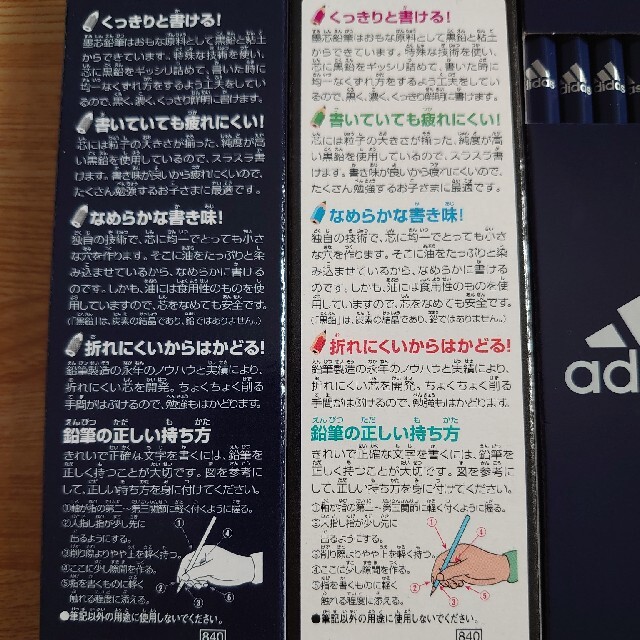 くっきりと書ける!
墨芯鉛筆はおもな原料として黒鉛と粘土
からできています。特殊な技術を使い、
芯に黒鉛をギッシリ詰めて、書いた時に
均一なくずれ方をするよう工夫をしてい
るので、黒く、濃く、くっきり鮮明に書けます。
書いていても疲れにくい!
芯には粒子の大きさが揃った、純度が高
い黒鉛を使用しているので、スラスラ書
けます。書き味が良いから疲れにくいので、
たくさん勉強するお子さまに最適です。
なめらかな書き味!
独自の技術で、芯に均一でとっても小さ
な穴を作ります。そこに油をたっぷりと染
み込ませているから、なめらかに書ける
のです。しかも、油には食用性のものを使
用していますので、芯をなめても安全です。
(「黒鉛」は、炭素の結晶であり、鉛ではありません。)
折れにくいからはかどる!
鉛筆製造の永年のノウハウと実績により、
折れにくい芯を開発。ちょくちょく削る
手間がはぶけるので、勉強もはかどります。
鉛筆の正しい持ち方
きれいで正確な文字を書くには、鉛筆を
正しく持つことが大切です。図を参考に
して、正しい持ち方を身に付けてください。
①軸が指の第二~第三関節に軽く付くように握る。
②人指し指が少し先に
出るようにする。
③削り際よりやや上を軽く持つ。
④ここに少し隙間を作る。
⑤指を書くものに軽く
触れる程度に添える。
●筆記以外の用途に使用しないでください。
840
くっきりと書ける!
墨芯鉛筆はおもな原料として黒鉛と粘土
からできています。特殊な技術を使い、
芯に黒鉛をギッシリ詰めて、書いた時に
均一なくずれ方をするよう工夫をしてい
るので、黒く、濃く、くっきり鮮明に書けます。
書いていても疲れにくい!
芯には粒子の大きさが揃った、純度が高
い黒鉛を使用しているので、スラスラ書
けます。書き味が良いから疲れにくいので、
たくさん勉強するお子さまに最適です。
なめらかな書き味!
独自の技術で、芯に均一でとっても小さ
な穴を作ります。そこに油をたっぷりと染
み込ませているから、なめらかに書ける
のです。しかも、油には食用性のものを使
用していますので、芯をなめても安全です。
(「黒鉛」は、炭素の結晶であり、鉛ではありません。)
折れにくいからはかどる!
鉛筆製造の永年のノウハウと実績により、
折れにくい芯を開発。ちょくちょく削る
手間がはぶけるので、勉強もはかどります。
鉛筆の正しい持ち方
きれいで正確な文字を書くには、鉛筆を
正しく持つことが大切です。図を参考に
して、正しい持ち方を身に付けてください。
①軸が指の第二~第三関節に軽く付くように握る。
②人指し指が少し先に
出るようにする。
③削り際よりやや上を軽く持つ。
④ここに少し隙間を作る。
⑤指を書くものに軽く
触れる程度に添える。
●筆記以外の用途に使用しないでください。
840
adidas
adidas
adidas
ad